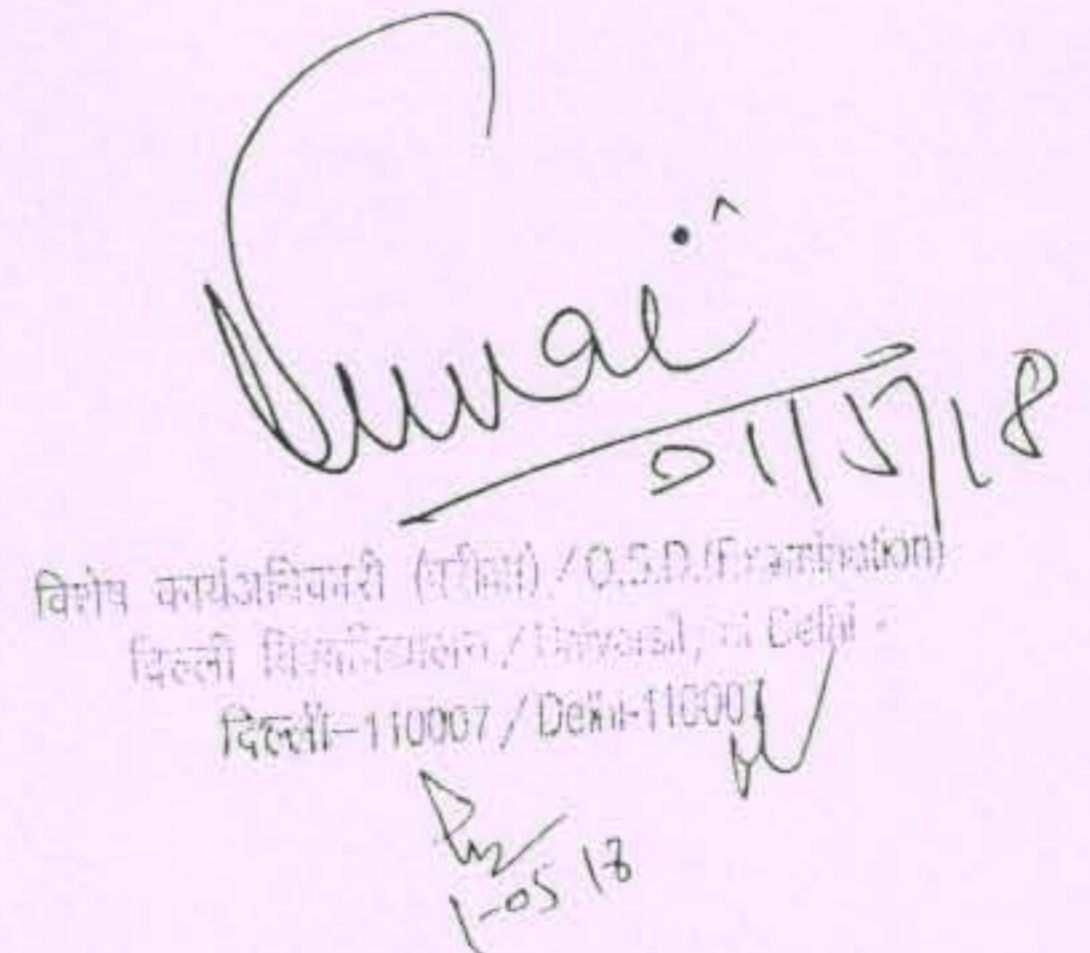 01/5/18
विशेष कार्यअधिकारी (परीक्षा) / O.S.D.(Examination)
दिल्ली विश्वविद्यालय / University of Delhi
दिल्ली-110007 / Delhi-110007
1-05-18